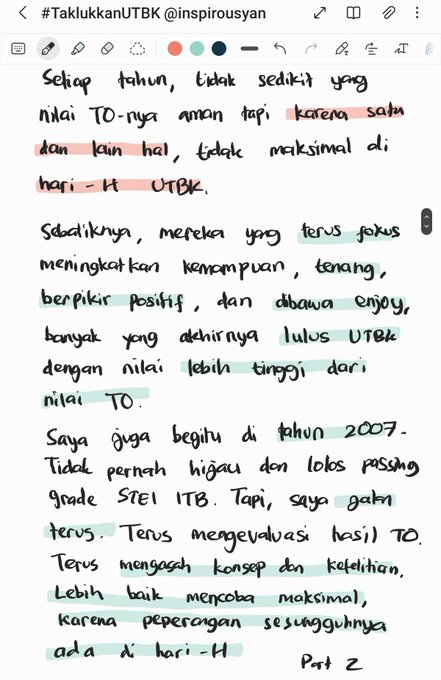 #TaklukkanUTBK @inspirousyan
Setiap tahun, tidak sedikit yang
nilai TO-nya aman tapi karena satu
dan lain hal, tidak maksimal di
hari-H UTBK.
Sebaliknya, mereka yang terus fokus
meningkatkan kemampuan, tenang,
berpikir positif, dan dibawa enjoy,
banyak yang akhirnya lulus UTBK
dengan nilai lebih tinggi dari
nilai TO.
Saya juga begitu di tahun 2007.
Tidak pernah hijau dan lolos passing
grade STEI ITB. Tapi, saya gaten
terus. Terus mengevaluasi hasil TO.
Terus mengasah konsep dan ketelitian.
Lebih baik mencoba maksimal,
karena peperangan sesungguhnya
ada di hari-H
Part 2